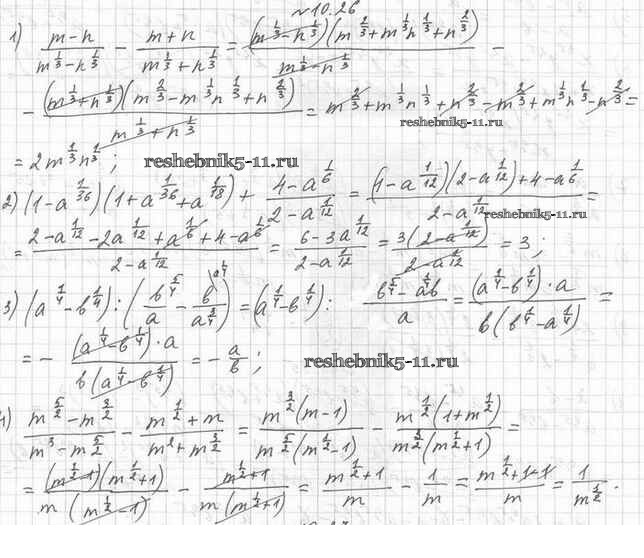 №10.26
1) (m-n)/(m^(1/3)-n^(1/3)) - (m+n)/(m^(1/3)+n^(1/3)) = (m^(1/3)-n^(1/3))(m^(2/3)+m^(1/3)n^(1/3)+n^(2/3))/(m^(1/3)-n^(1/3)) -
- (m^(1/3)+n^(1/3))(m^(2/3)-m^(1/3)n^(1/3)+n^(2/3))/(m^(1/3)+n^(1/3)) = m^(2/3)+m^(1/3)n^(1/3)+n^(2/3)-m^(2/3)+m^(1/3)n^(1/3)-n^(2/3) =
reshebnik5-11.ru
= 2m^(1/3)n^(1/3) ; reshebnik5-11.ru
2) (1-a^(1/36))(1+a^(1/36)+a^(1/18)) + (4-a^(1/6))/(2-a^(1/12)) = ((1-a^(1/12))(2-a^(1/12))+4-a^(1/6))/(2-a^(1/12)) =
reshebnik5-11.ru
= (2-a^(1/12)-2a^(1/12)+a^(1/6)+4-a^(1/6))/(2-a^(1/12)) = (6-3a^(1/12))/(2-a^(1/12)) = 3(2-a^(1/12))/(2-a^(1/12)) = 3 ;
3) (a^(1/4)-b^(1/4)) : (b^(5/4)/a - b\a^(1/4)/a^(3/4)) = (a^(1/4)-b^(1/4)) : (b^(5/4)-a^(1/4)b)/a = (a^(1/4)-b^(1/4))·a/(b(b^(1/4)-a^(1/4))) =
= - (a^(1/4)-b^(1/4))·a/(b(a^(1/4)-b^(1/4))) = - a/b ; reshebnik5-11.ru
4) (m^(5/2)-m^(3/2))/(m^3-m^(5/2)) - (m^(1/2)+m)/(m^2+m^(3/2)) = m^(3/2)(m-1)/(m^(5/2)(m^(1/2)-1)) - m^(1/2)(1+m^(1/2))/(m^(3/2)(m^(1/2)+1)) =
= (m^(1/2)-1)(m^(1/2)+1)/(m(m^(1/2)-1)) - (m^(1/2)+1)/(m(m^(1/2)+1)) = (m^(1/2)+1)/m - 1/m = (m^(1/2)+1-1)/m = 1/m^(1/2) .